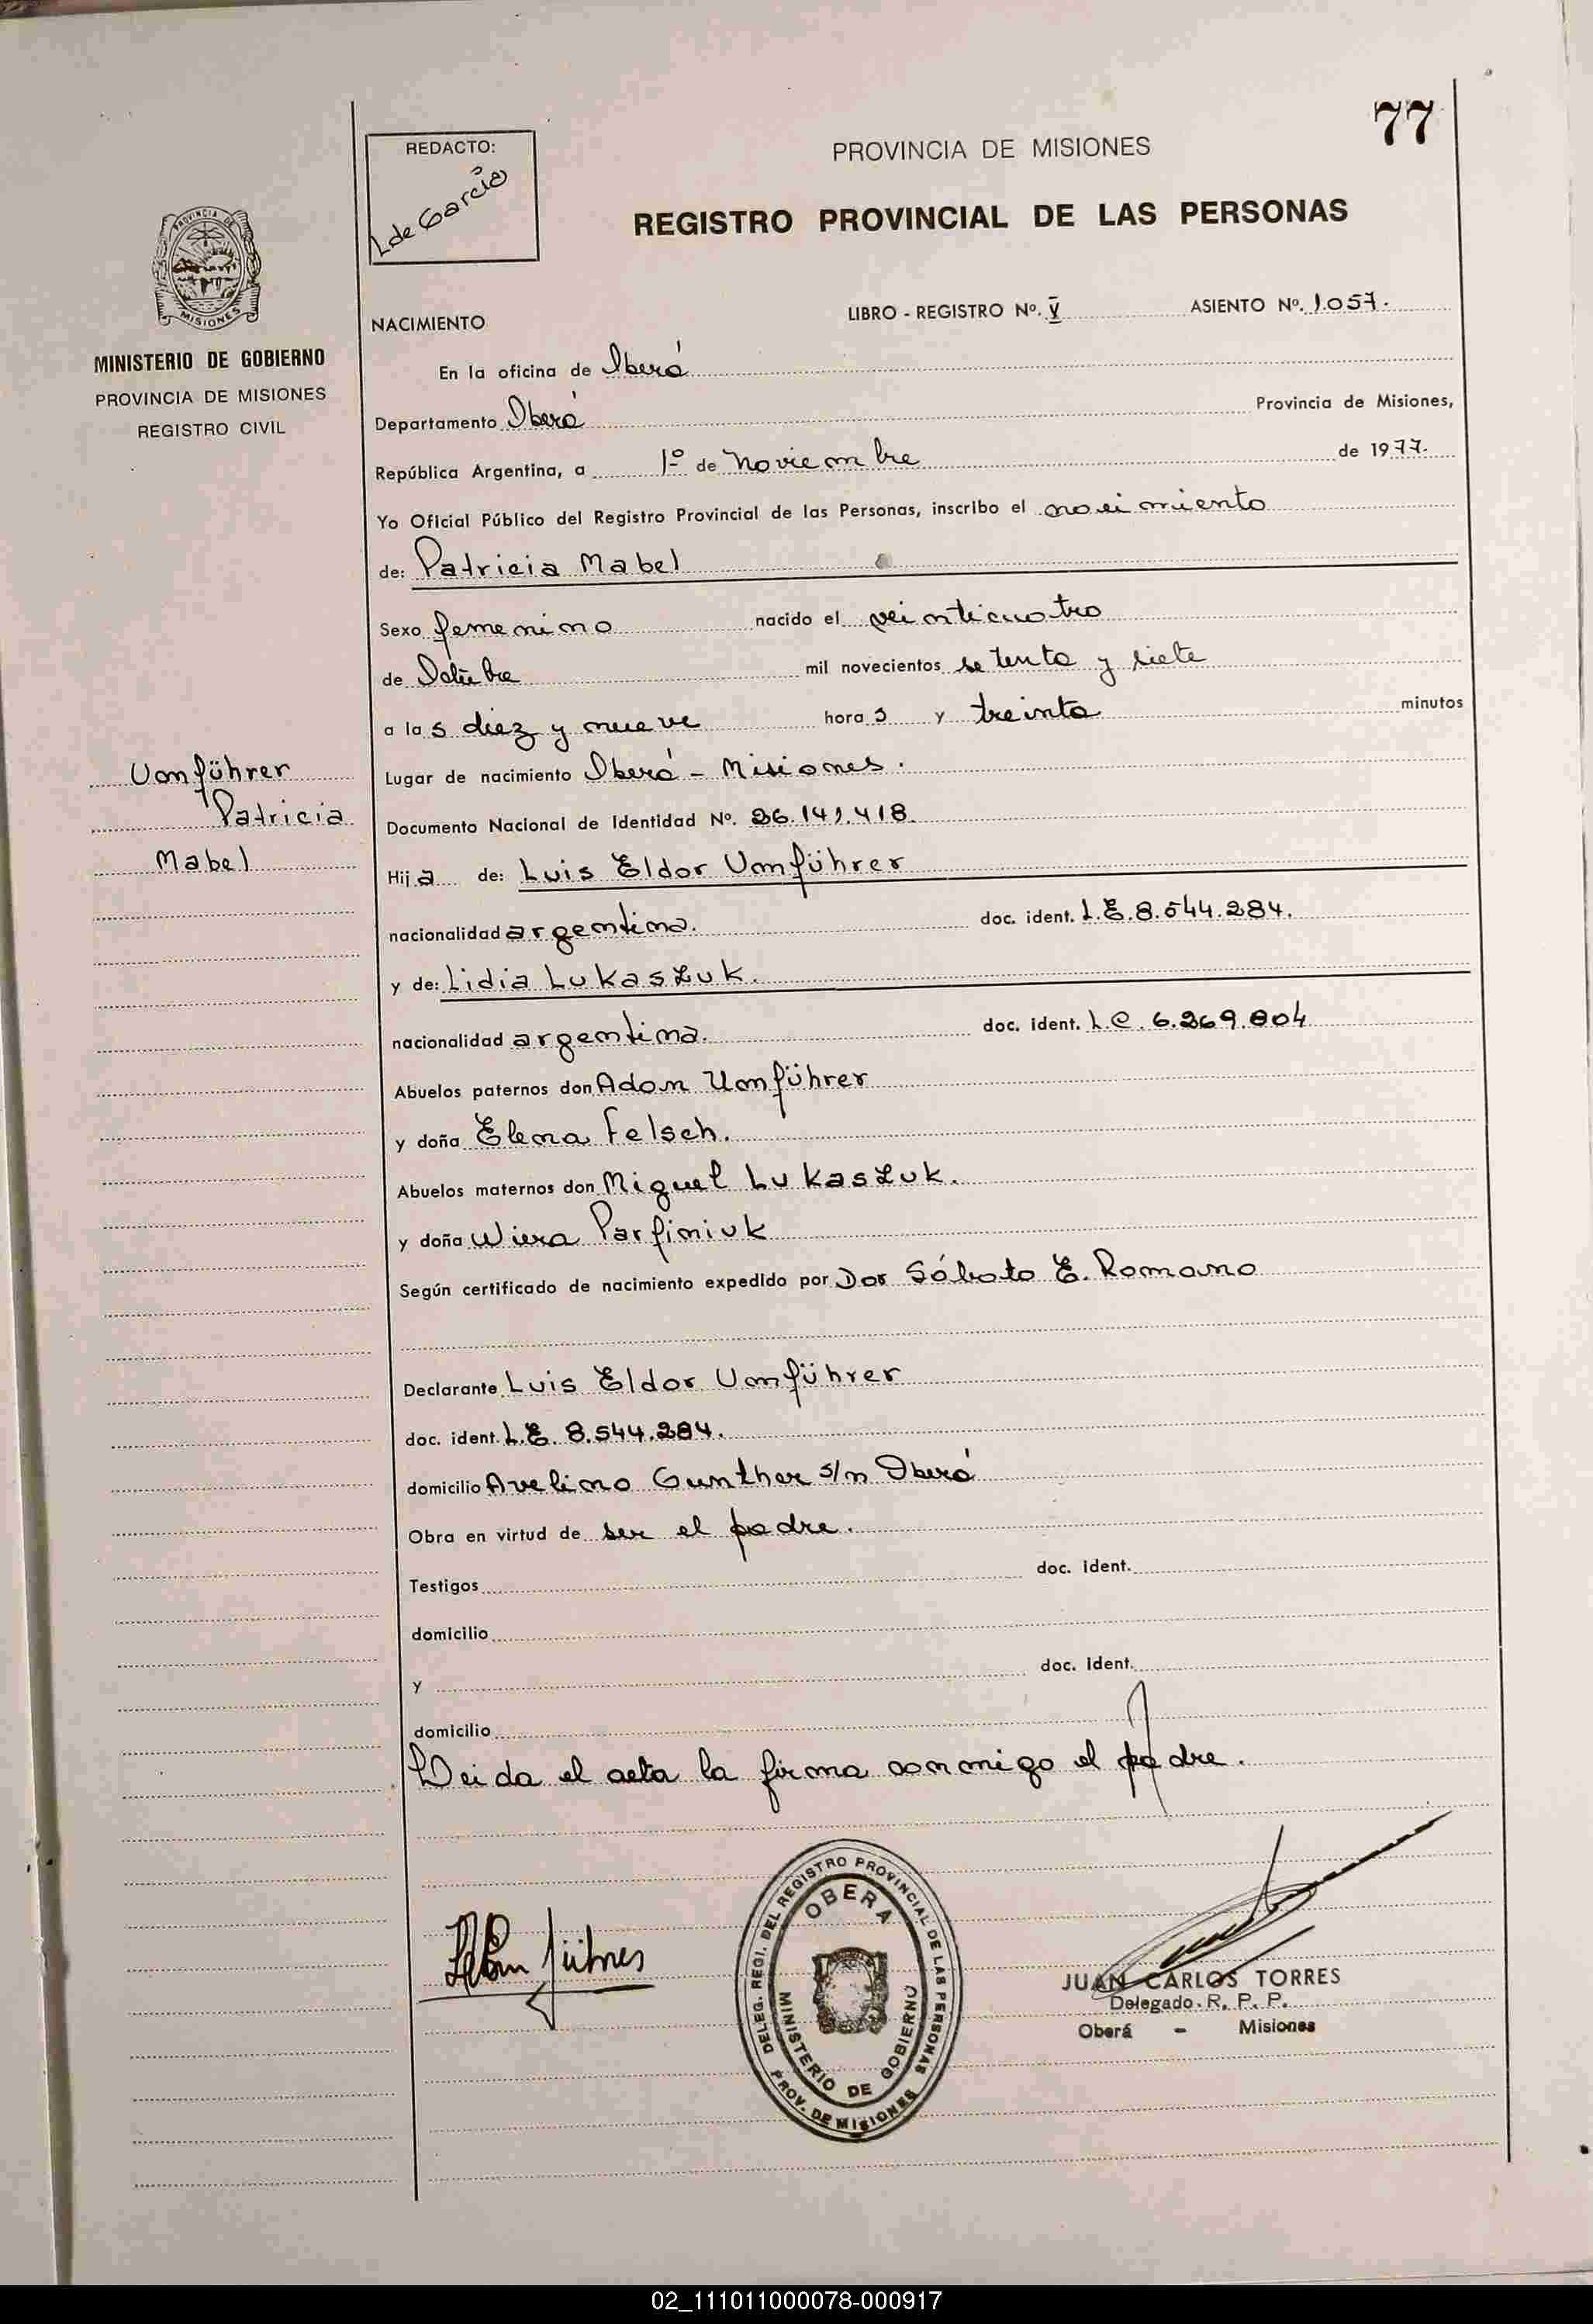 77
REDACTO:
L de Garcia
PROVINCIA DE MISIONES
REGISTRO PROVINCIAL DE LAS PERSONAS
PROVINCIA DE
MISIONES
MINISTERIO DE GOBIERNO
PROVINCIA DE MISIONES
REGISTRO CIVIL
NACIMIENTO LIBRO - REGISTRO Nº. V ASIENTO Nº. 1.057.
En la oficina de Oberá
Departamento Oberá Provincia de Misiones,
República Argentina, a 1º de Noviembre de 1977.
Yo Oficial Público del Registro Provincial de las Personas, inscribo el nacimiento
de: Patricia Mabel
Sexo femenino nacido el veinticuatro
de Octubre mil novecientos setenta y siete
a las diez y nueve horas y treinta minutos
Lugar de nacimiento Oberá - Misiones.
Documento Nacional de Identidad Nº. 26.141.418.
Hija de: Luis Eldor Vonführer
nacionalidad argentina. doc. ident. L.E. 8.544.284.
y de: Lidia Lukaszuk.
nacionalidad argentina. doc. ident. L.C. 6.269.804
Abuelos paternos don Adan Vonführer
y doña Elena Felsch.
Abuelos maternos don Miguel Lukaszuk.
y doña Wiera Parfiniuk
Según certificado de nacimiento expedido por Dor Sábato E. Romano
Declarante Luis Eldor Vonführer
doc. ident. L.E. 8.544.284.
domicilio Avelino Gunther s/n Oberá
Obra en virtud de ser el padre.
Testigos doc. ident.
domicilio
y doc. ident.
domicilio
Leida el acta la firma conmigo el padre.
Vonführer
Patricia
Mabel
DELEG. REGI. DEL REGISTRO PROVINCIAL DE LAS PERSONAS
OBERA
MINISTERIO DE GOBIERNO
PROV. DE MISIONES
JUAN CARLOS TORRES
Delegado R. P. P.
Oberá - Misiones
02_111011000078-000917